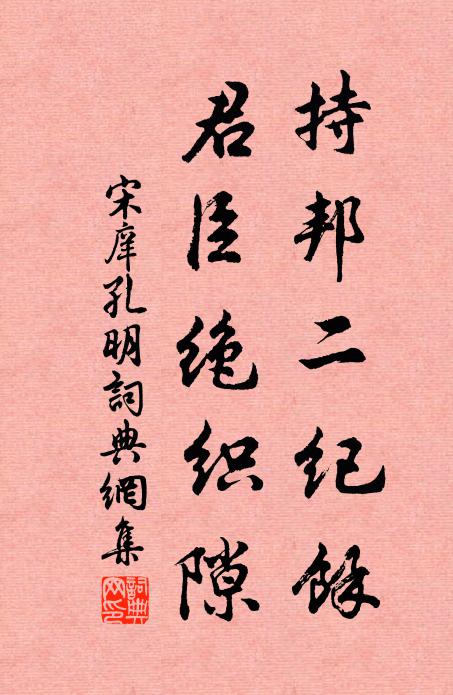 持邦二纪馀
君臣绝织隙
宋庠孔明詞典網集
詞典网印